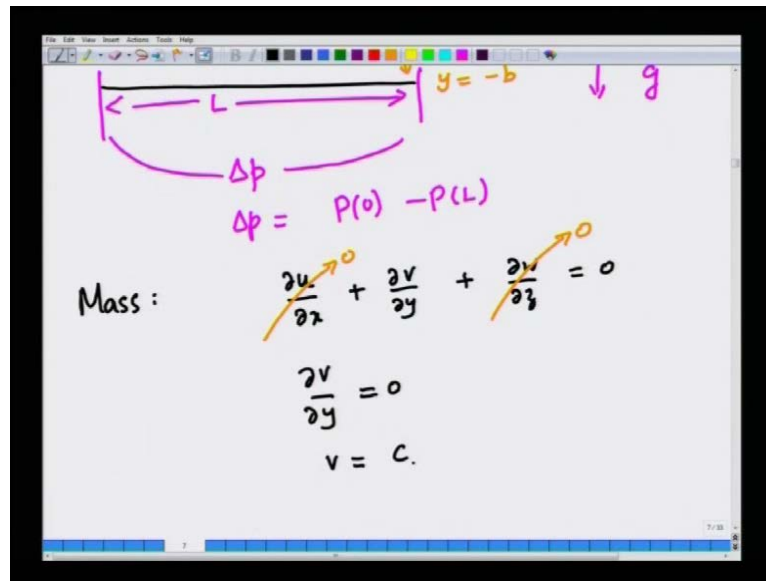 File Edit View Insert Actions Tools Help
B I
y = -b
g
L
Δp
Δp = P(0) - P(L)
Mass : ∂u/∂x → 0 + ∂v/∂y + ∂w/∂z → 0 = 0
∂v/∂y = 0
v = C.
7